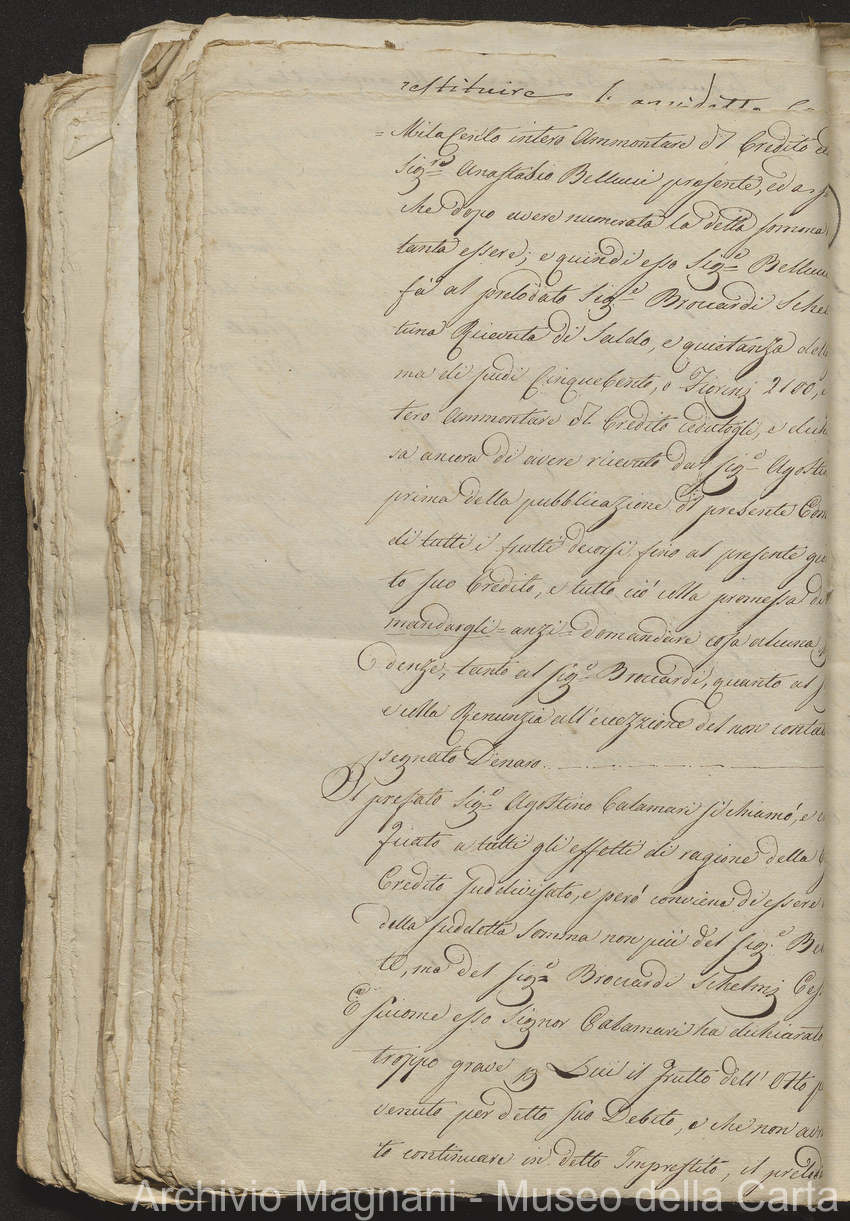 restituire la anzidetta
= Mila Cento intero Ammontare del Credito
Sig.re Anastasio Bellucci presente, ed
che dopo avere numerata la detta somma
tanta essere; e quindi esso Sig.e Bellucc
fà al prelodato Sig.e Brocardi Schel
tuna Ricevuta di Saldo, e quietanza dell
ma di scudi Cinquecento, o Fiorini 2100,
tero Ammontare del Credito cedutogli, e dich
sa ancora di avere ricevuto dal Sig.e Agostin
prima della pubblicazione del presente
di tutti i frutti decorsi fino al presente
to suo Credito, e tutto ciò colla promessa di
mandargli = anzi = domandare cosa alcuna
denze, tanto al Sig.e Brocardi, quanto al
e colla Renunzia all'eccezzione del non conta
segnato Denaro.
Il prefato Sig.e Agostino Calamari si chiamò, e
ficato a tutti gli effetti di ragione della
Credito sudivisato, e però conviene di essere
della suddetta Somma non più del Sig.e Be
te, ma del Sig.e Brocardi Schelmi
E siccome esso Signor Calamari ha dichiarato
troppo grave p Lui il Frutto dell' Otto p
venuto per detto suo Debito, e che non
to continuare in detto Imprestito, il prelo
Archivio Magnani - Museo della Carta